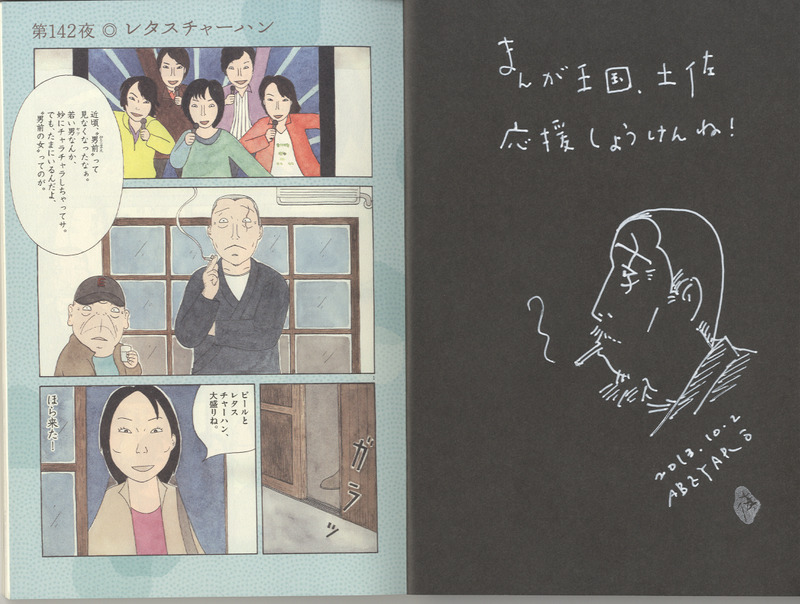 第142夜 ◎ レタスチャーハン
近頃、"男前"って
見なくなったなぁ。
若い男なんか、
妙にチャラチャラしちゃってサ。
でも、たまにいるんだよ、
"男前の女"ってのが。
ガラッ
ビールと
レタス
チャーハン、
大盛りね。
ほら来た!
まんが王国、土佐
応援しょうけんね!
2013.10.2